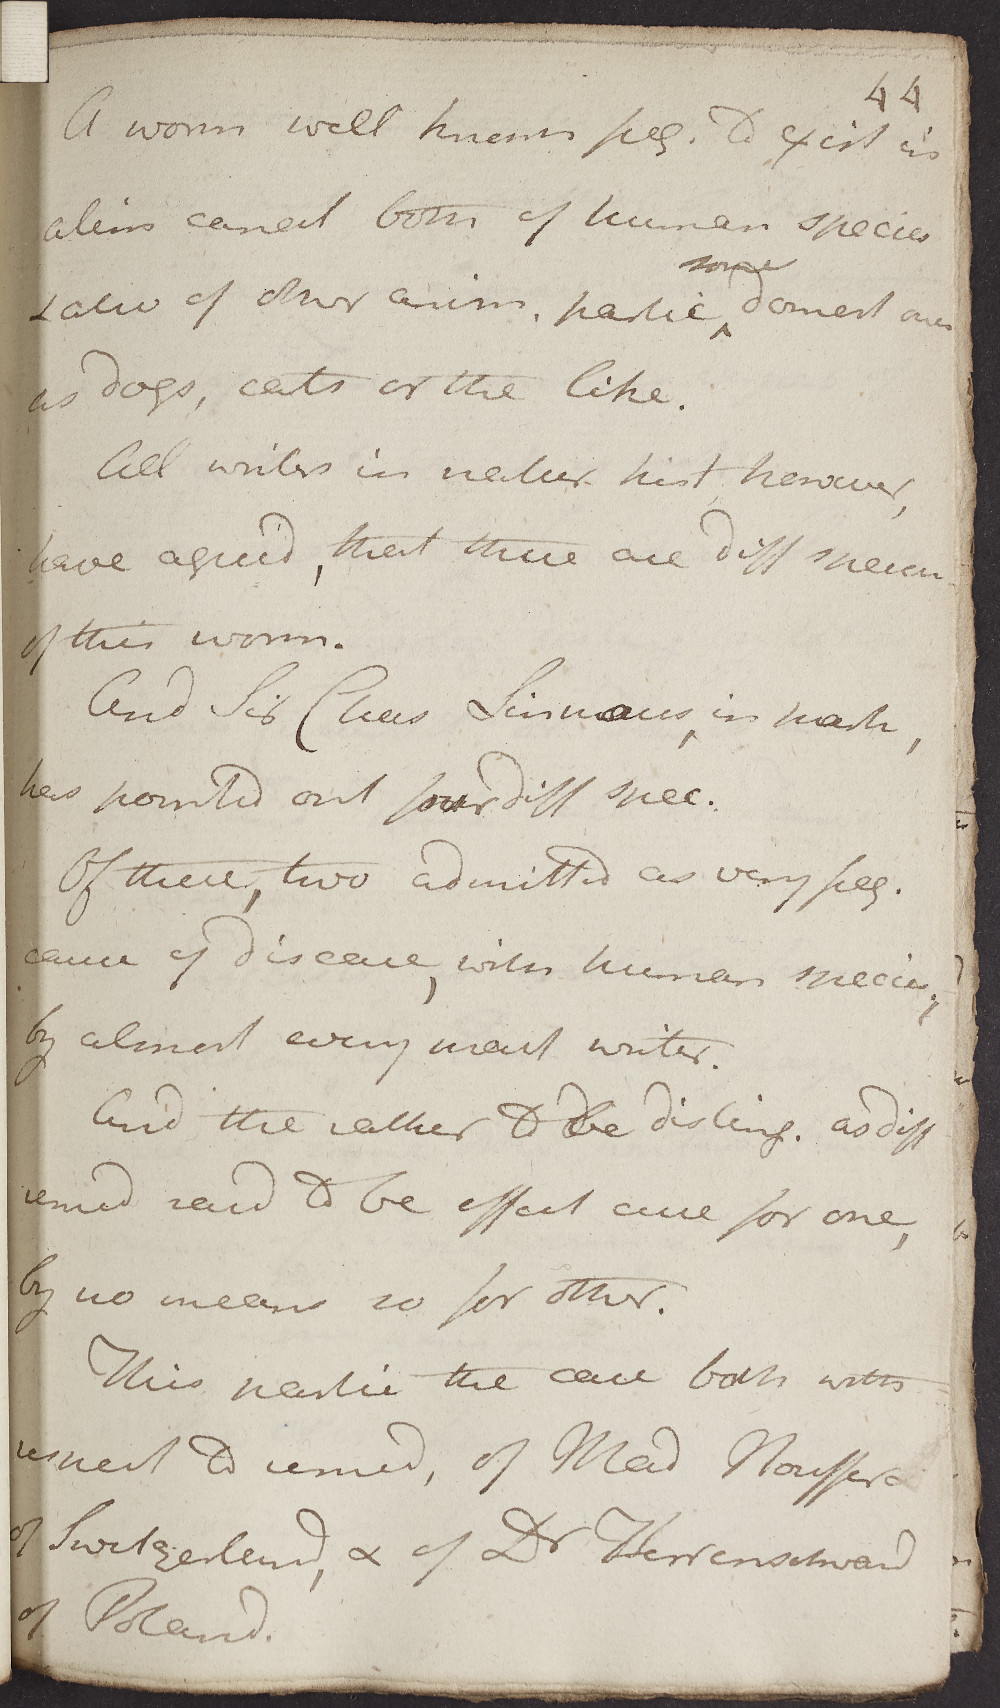 44
A worm well known freq. to exist in
alim canal both of human species
& also of other anim. partic, some domest ones
as dogs, cats or the like.
All writers in natur. hist, however,
have agreed, that there are diff specim
of this worm.
And Sir Chas Linnaeus, in partic,
has pointed out four diff spec.
Of these, two admitted as very freq.
cause of disease, with human species,
by almost every pract writer.
And the rather to be disting. as diff
remed said to be effect cure for one,
by no means so for other.
This partic the case both with
respect to remed, of Mad Nouffer
of Switzerland, & of Dr Herrenschwand
of Poland.